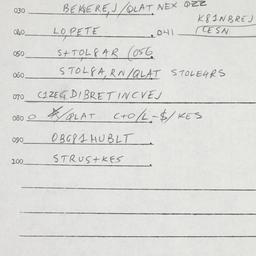 030 BEKEREJ/QLAT NEX QZZ
K81NBREJ
040 LO,PETE .041 (CESN
050 S+TOL8AR (05G
060 STOL8A,RN/QLAT STOLE4RS
070 C1ZEG DIBRETINCVEJ
080 $/QLAT C+O/L-$/KES
090 OBGP1HUBLT
100 STRUS+KES